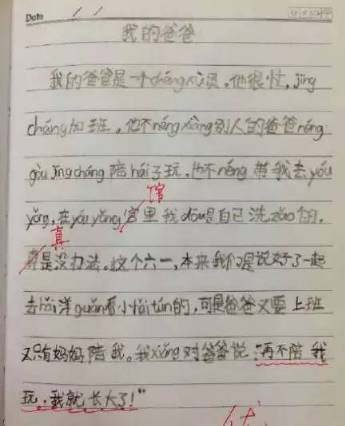 Date / /
我的爸爸
我的爸爸是一个chéng员。他很忙，jīng
cháng加班，他不néng xiàng别人的爸爸néng
gòu jīng cháng陪hái子玩，也不néng带我去yóu
yǒng，在yóu yǒng宫里我dōu是自己洗zǎo的。
馆
真
是没办法。这个六一，本来我们是说好了一起
去hǎi洋guǎn看小hǎi tún的，可是爸爸又要上班
又只有妈妈陪我。我xiǎng对爸爸说："再不陪我
玩，我就长大了！"
优